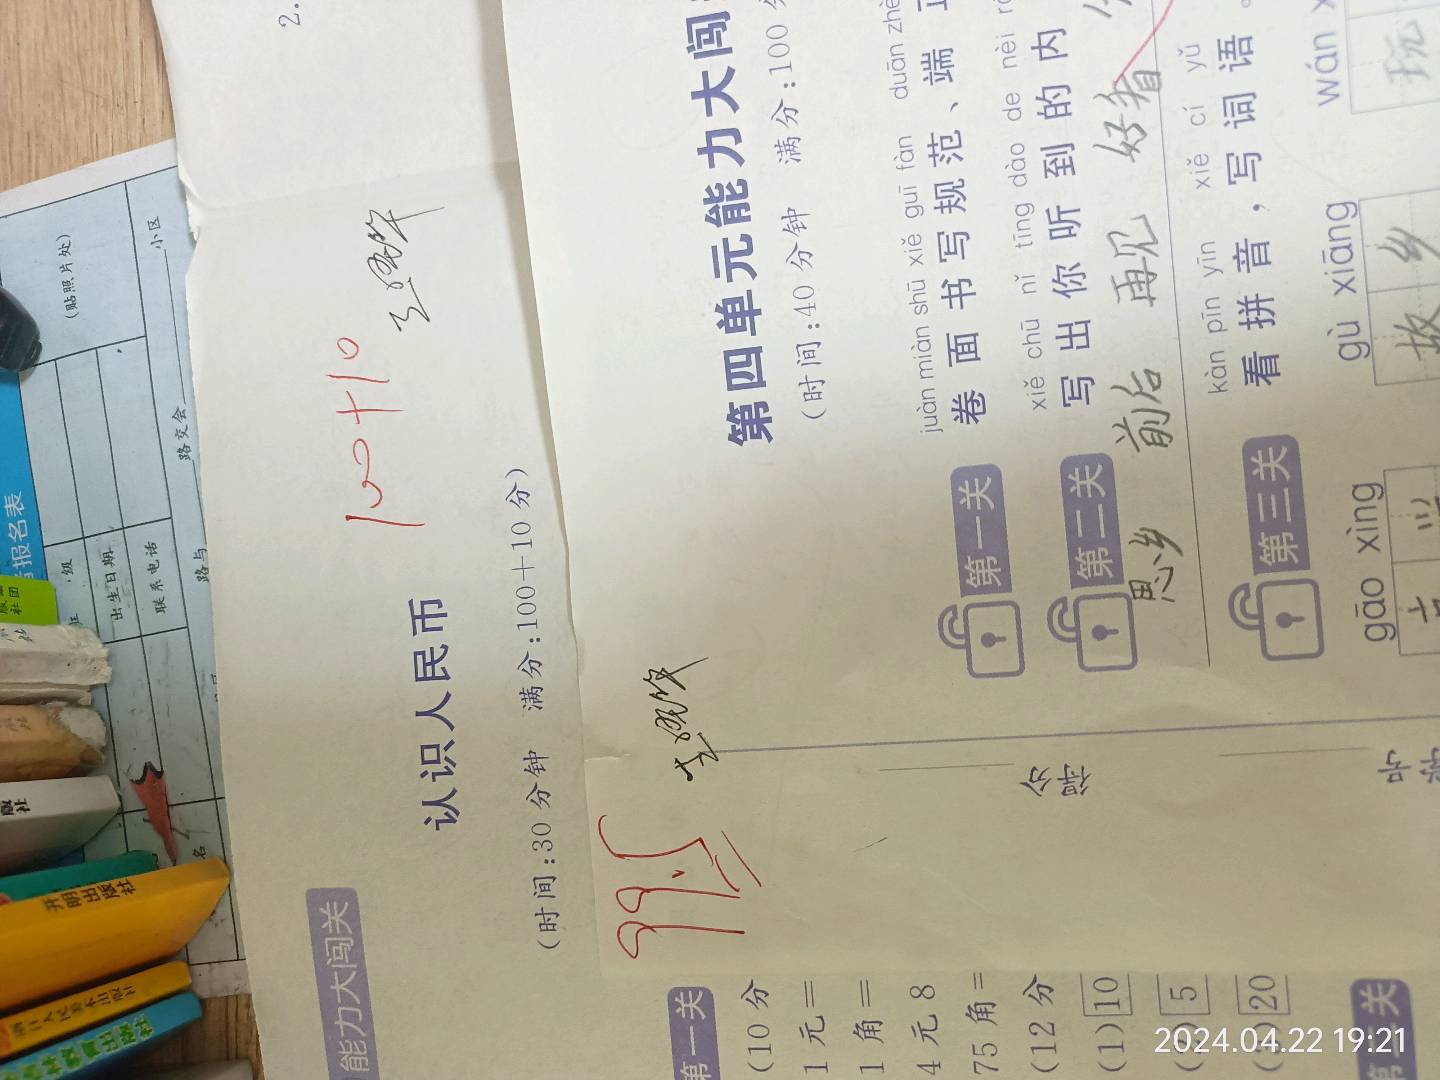 认识人民币
100+10
(时间:30分钟 满分:100+10分)
能力大闯关
第一关
(10分
1元=
1角=
4元8
75角=
(12分
(1) 10
5
20
99.5
第四单元能力大闯
(时间:40分钟 满分:100
juàn miàn shū xiě guī fàn duān zhè
第一关 卷面书写规范、端
xiě chū nǐ tīng dào de nèi
第二关 写出你听到的内
思乡 前后 再见 好看
kàn pīn yīn xiě cí yǔ
第三关 看拼音,写词语。
gāo xìng gù xiāng wán
故乡 玩
2.
(贴照片处)
小区
报名表
级
出生日期
联系电话
路交会
路与
名
开明出版社
版社
2024.04.22 19:21